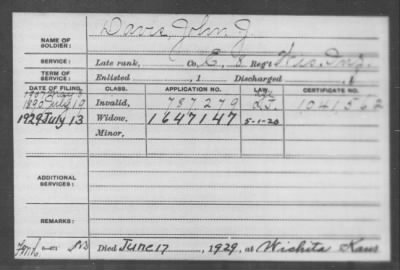 NAME OF SOLDIER: Davis, John J.
SERVICE: Late rank, Co. E, 8 Reg't Wis. Inf.
TERM OF SERVICE: Enlisted , 1 Discharged , 1
DATE OF FILING. CLASS. APPLICATION NO. LAW. CERTIFICATE NO.
1890 July 19 Invalid, 787279 1041562
1929 July 13 Widow, 1647147 5-1-20
Minor,
ADDITIONAL SERVICES:
REMARKS:
Died June 17, 1929, at Wichita Kans